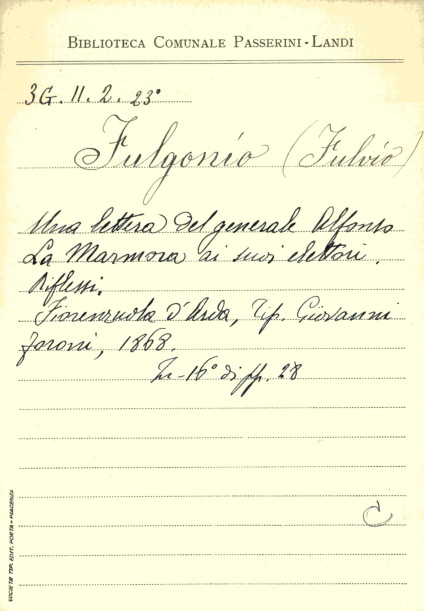 BIBLIOTECA COMUNALE PASSERINI-LANDI
3G. 11. 2. 23°
Fulgonio (Fulvio)
Una lettera del generale Alfonso
La Marmora ai suoi elettori.
Riflessi.
Fiorenzuola d'Arda, Tip. Giovanni
Foroni, 1868.
In-16° di pp. 28
C
SOCIETÀ TIP. EDIT. PORTA - PIACENZA